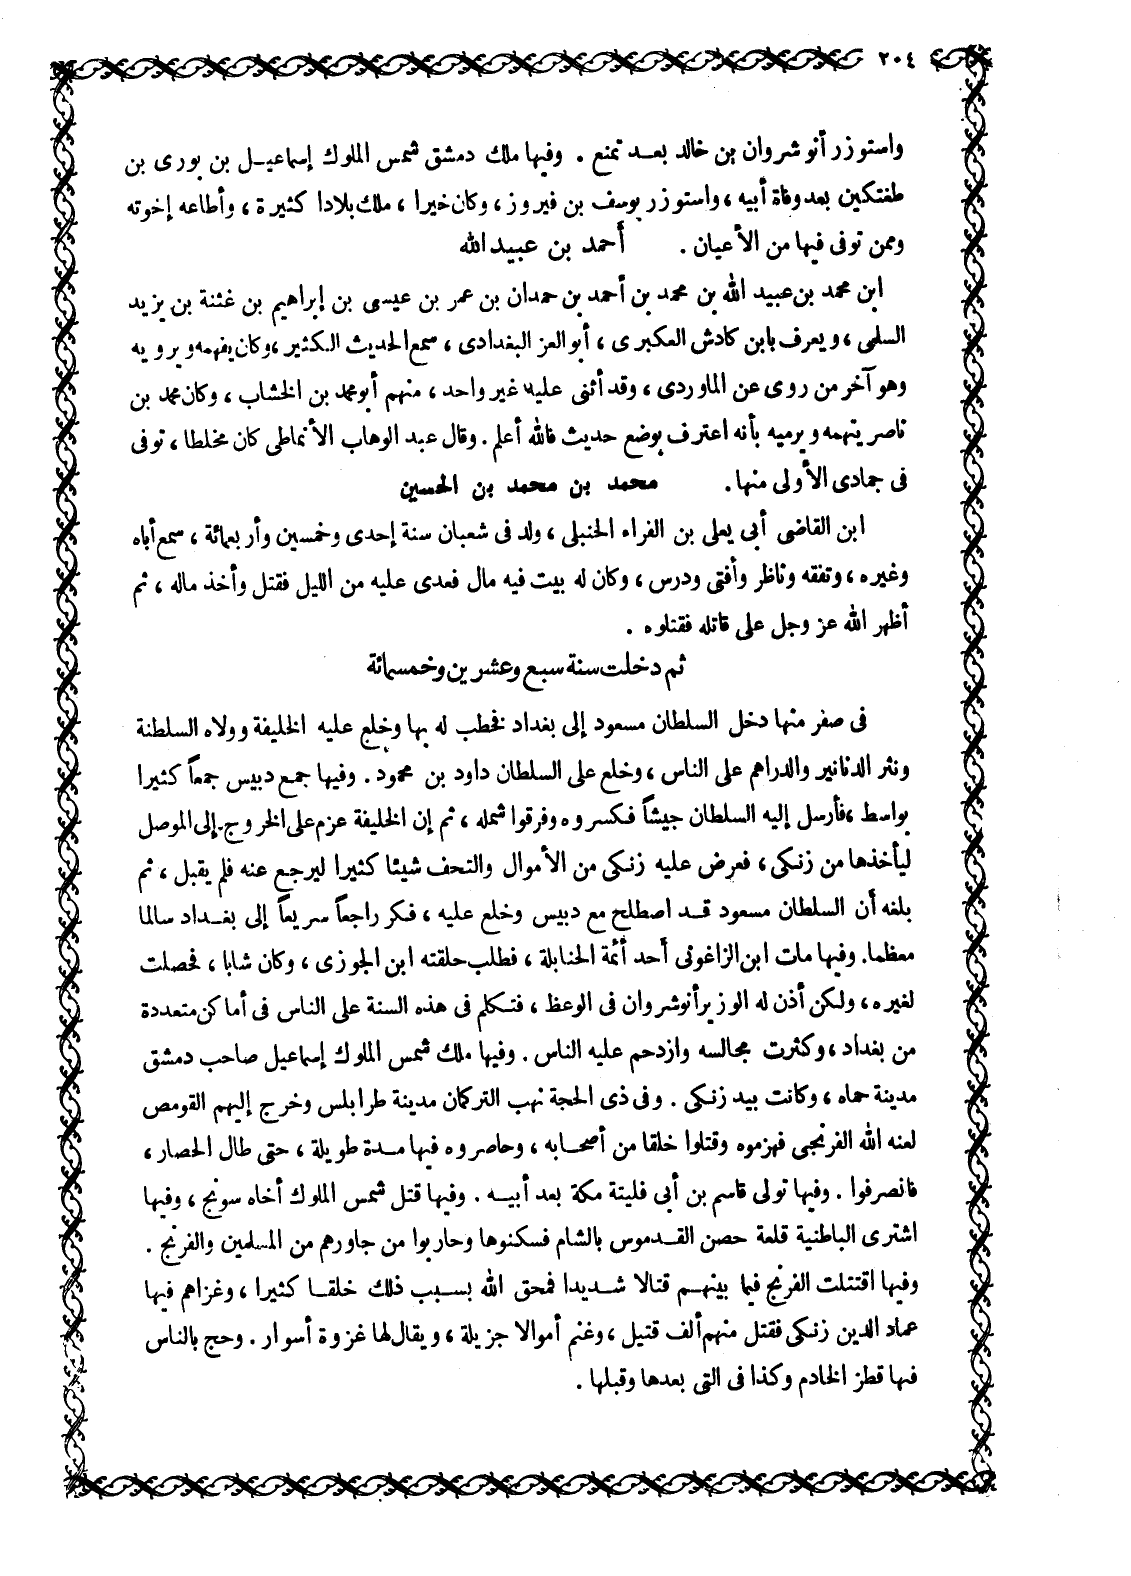 ٢٠٤
واستوزر أنو شروان بن خالد بعد تمنع . وفيها ملك دمشق شمس الملوك إسماعيل بن بورى بن
طغتكين بعد وفاة أبيه ، واستوزر يوسف بن فيروز ، وكان خيرا ، ملك بلادا كثيرة ، وأطاعه إخوته
وممن توفى فيها من الأعيان . أحمد بن عبيد الله
ابن محمد بن عبيد الله بن محمد بن أحمد بن حمدان بن عمر بن عيسى بن إبراهيم بن غثنة بن يزيد
السلمى ، ويعرف بابن كادش العكبرى ، أبو العز البغدادى ، سمع الحديث الكثير ، وكان يفهمه ويرويه
وهو آخر من روى عن الماوردى ، وقد أثنى عليه غير واحد ، منهم أبو محمد بن الخشاب ، وكان محمد بن
ناصر يتهمه ويرميه بأنه اعترف بوضع حديث فالله أعلم . وقال عبد الوهاب الأنماطى كان مخلطا ، توفى
فى جمادى الأولى منها . محمد بن محمد بن الحسين
ابن القاضى أبى يعلى بن الفراء الحنبلى ، ولد فى شعبان سنة إحدى وخمسين وأربعمائة ، سمع أباه
وغيره ، وتفقه وناظر وأفتى ودرس ، وكان له بيت فيه مال فعدى عليه من الليل فقتل وأخذ ماله ، ثم
أظهر الله عز وجل على قاتله فقتلوه .
ثم دخلت سنة سبع وعشرين وخمسمائة
فى صفر منها دخل السلطان مسعود إلى بغداد فخطب له بها وخلع عليه الخليفة وولاه السلطنة
ونثر الدنانير والدراهم على الناس ، وخلع على السلطان داود بن محمود . وفيها جمع دبيس جمعاً كثيرا
بواسط ، فأرسل إليه السلطان جيشاً فكسروه وفرقوا شمله ، ثم إن الخليفة عزم على الخروج إلى الموصل
ليأخذها من زنكى ، فعرض عليه زنكى من الأموال والتحف شيئا كثيرا ليرجع عنه فلم يقبل ، ثم
بلغه أن السلطان مسعود قد اصطلح مع دبيس وخلع عليه ، فكر راجعاً سريعاً إلى بغداد سالما
معظما . وفيها مات ابن الزاغونى أحد أئمة الحنابلة ، فطلب حلقته ابن الجوزى ، وكان شابا ، فحصلت
لغيره ، ولكن أذن له الوزير أنوشروان فى الوعظ ، فتكلم فى هذه السنة على الناس فى أماكن متعددة
من بغداد ، وكثرت مجالسه وازدحم عليه الناس . وفيها ملك شمس الملوك إسماعيل صاحب دمشق
مدينة حماه ، وكانت بيد زنكى . وفى ذى الحجة نهب التركمان مدينة طرابلس وخرج إليهم القومص
لعنه الله الفرنجى فهزموه وقتلوا خلقا من أصحابه ، وحاصروه فيها مدة طويلة ، حتى طال الحصار ،
فانصرفوا . وفيها تولى قاسم بن أبى فليتة مكة بعد أبيه . وفيها قتل شمس الملوك أخاه سونج ، وفيها
اشترى الباطنية قلعة حصن القدموس بالشام فسكنوها وحاربوا من جاورهم من المسلمين والفرنج .
وفيها اقتتلت الفرنج فيما بينهم قتالا شديدا فمحق الله بسبب ذلك خلقا كثيرا ، وغزاهم فيها
عماد الدين زنكى فقتل منهم ألف قتيل ، وغنم أموالا جزيلة ، ويقال لها غزوة أسوار . وحج بالناس
فيها قطز الخادم وكذا فى التى بعدها وقبلها .